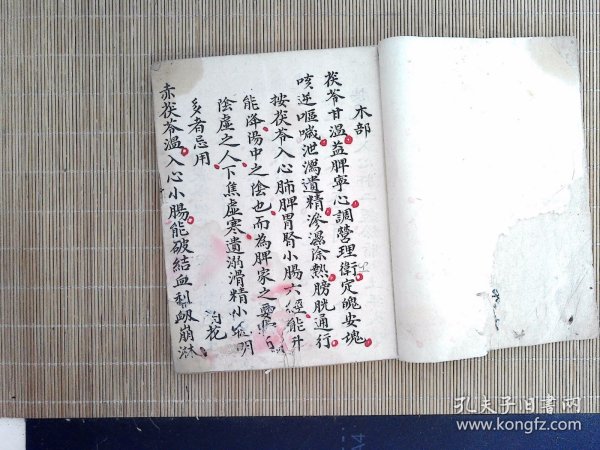 木部
茯苓甘溫益脾寧心調營理衛定魄安魂
咳逆嘔喊泄瀉遺精滲濕除熱膀胱通行
按茯苓入心肺脾胃腎小腸六經能升
能降陽中之陰也而為脾家之要
陰虛之人下焦虛寒遺溺滑精小 明
多者忌用 花
赤茯苓溫入心小腸能破結血 衂崩淋
孔夫子旧书网
www.kongfz.com